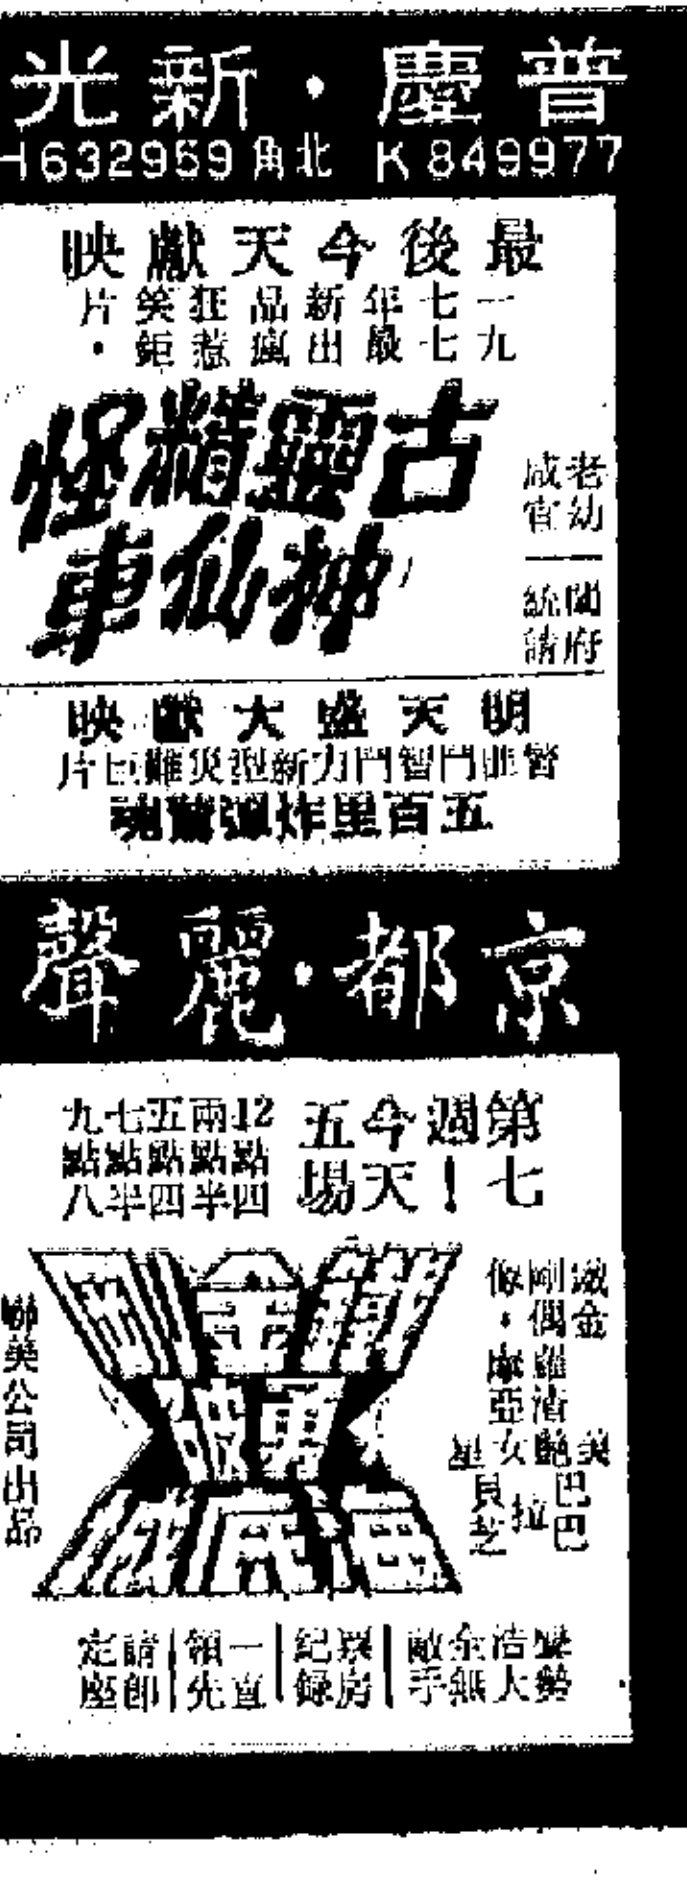 普慶・新光
K849977 北角 H632959
最後今天獻映
一九七七年最新出品瘋狂惹笑鉅片・
古靈精怪
神仙車
老幼咸宜
闔府統請
明天盛大獻映
警匪鬥智鬥力新型災難巨片
五百里炸彈驚魂
京都・麗聲
第七週！今天五場
12點四 兩點半 五點四 七點半 九點八
鐵金剛
勇破
海底城
金剛偶像・羅渣摩亞
美艷女星 巴巴拉貝芝
聯美公司出品
聲勢浩大 全無敵手
票房紀錄
一直領先
請即定座